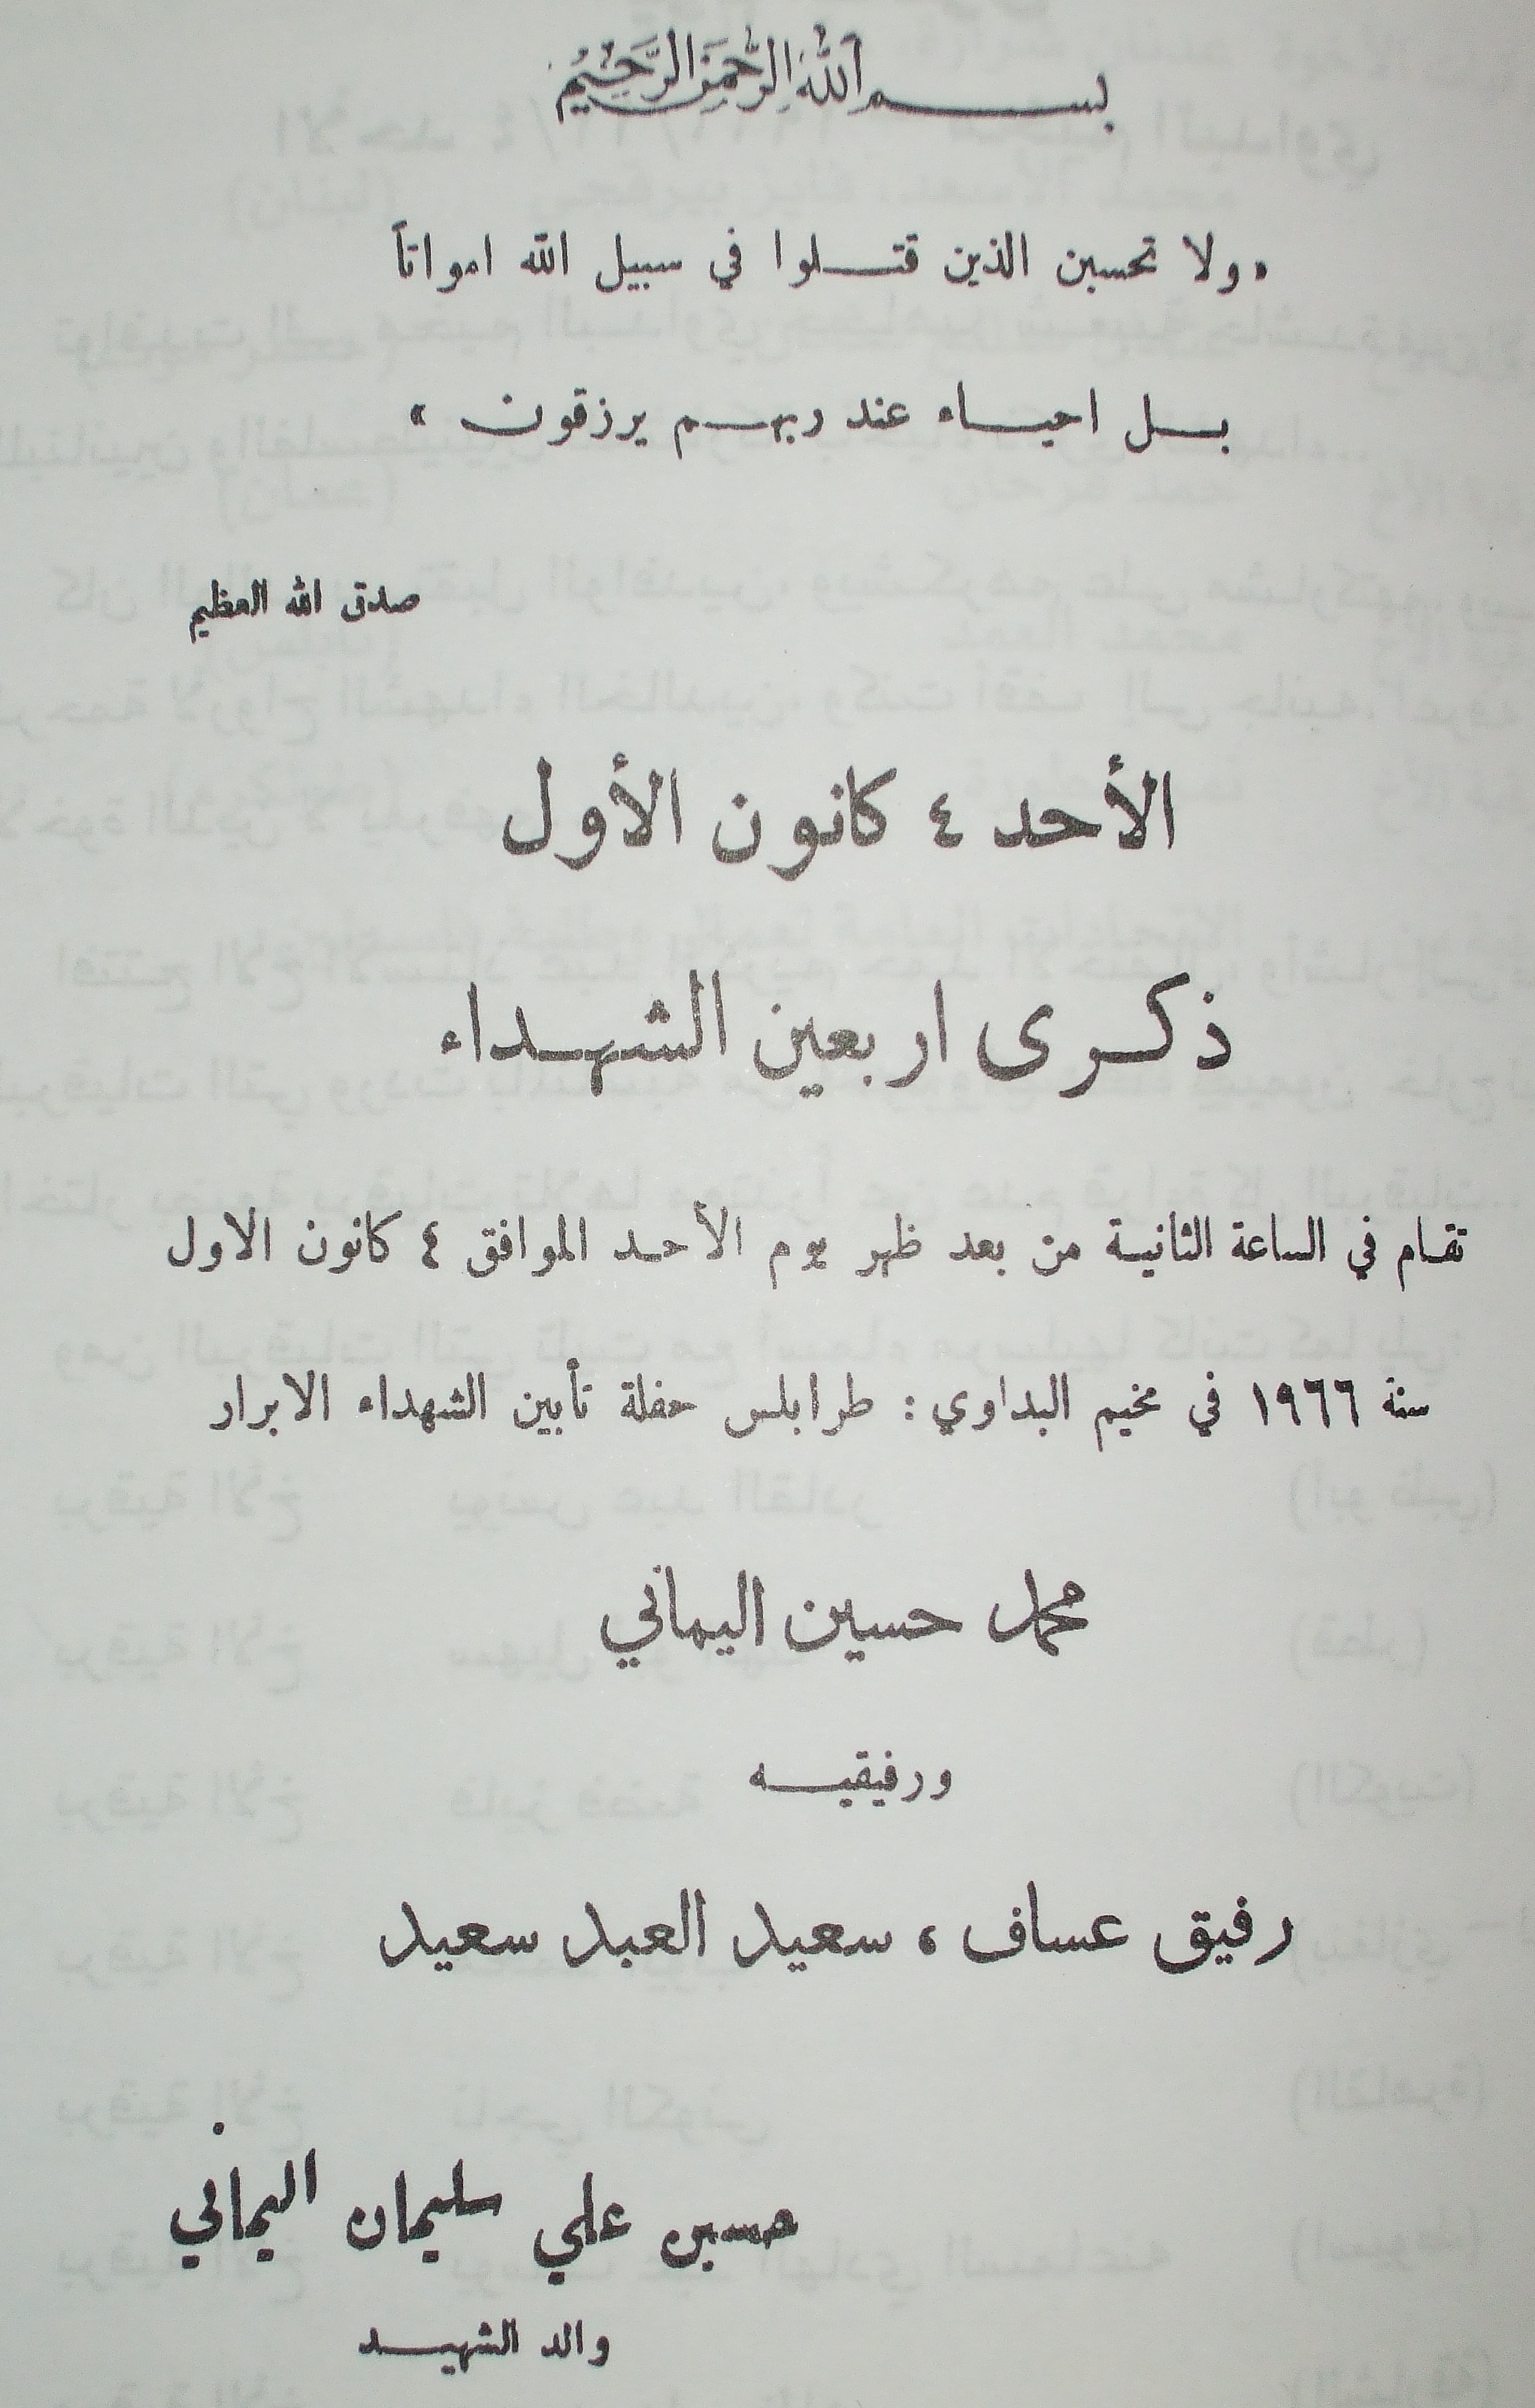 بسم الله الرحمن الرحيم
«ولا تحسبن الذين قتلوا في سبيل الله امواتاً
بل احياء عند ربهم يرزقون»
صدق الله العظيم
الأحد ٤ كانون الأول
ذكرى اربعين الشهداء
تقام في الساعة الثانية من بعد ظهر يوم الأحد الموافق ٤ كانون الاول
سنة ١٩٦٦ في مخيم البداوي : طرابلس حفلة تأبين الشهداء الابرار
محمد حسين اليماني
ورفيقيه
رفيق عساف ، سعيد العبد سعيد
حسين علي سليمان اليماني
والد الشهيد